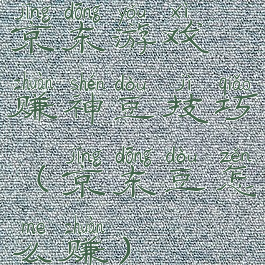 jīng dōng yóu xì
京东游戏
zhuàn shén dòu jì qiǎo
赚神豆技巧
jīng dōng dòu zěn
（京东豆怎
me zhuàn
么赚）